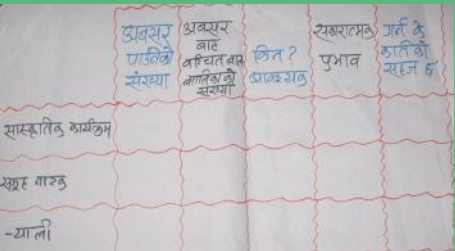 अवसर पाएको संख्या
अवसर बाट वन्चित बालबालिकाको संख्या
किन? आवश्यक
सकारात्मक प्रभाव
गर्न के कतिको सहज छ
सांस्कृतिक कार्यक्रम
सडक नाटक
-याली